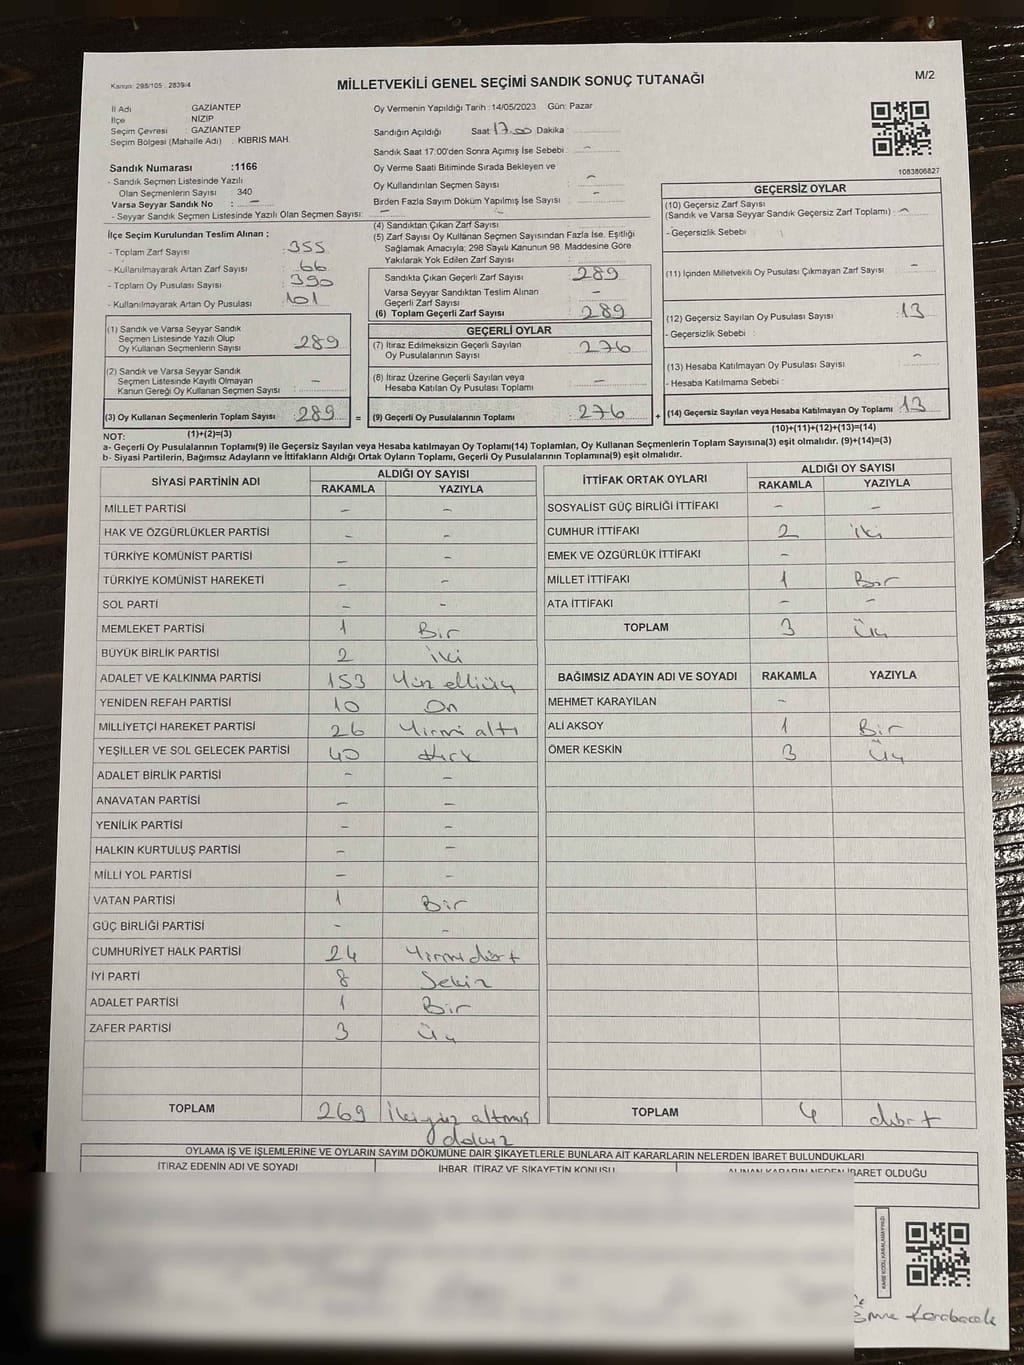 Kanun: 298/105 , 2839/4
MİLLETVEKİLİ GENEL SEÇİMİ SANDIK SONUÇ TUTANAĞI
M/2
İl Adı GAZİANTEP
İlçe NİZİP
Seçim Çevresi : GAZİANTEP
Seçim Bölgesi (Mahalle Adı) : KIBRIS MAH.
Sandık Numarası :1166
- Sandık Seçmen Listesinde Yazılı
Olan Seçmenlerin Sayısı 340
Varsa Seyyar Sandık No : -
- Seyyar Sandık Seçmen Listesinde Yazılı Olan Seçmen Sayısı: -
İlçe Seçim Kurulundan Teslim Alınan :
- Toplam Zarf Sayısı : 355
- Kullanılmayarak Artan Zarf Sayısı : 66
- Toplam Oy Pusulası : 390
- Kullanılmayarak Artan Oy Pusulası : 101
(1) Sandık ve Varsa Seyyar Sandık
Seçmen Listesinde Yazılı Olup
Oy Kullanan Seçmenlerin Sayısı 289
(2) Sandık ve Varsa Seyyar Sandık
Seçmen Listesinde Kayıtlı Olmayan
Kanun Gereği Oy Kullanan Seçmen Sayısı : -
(3) Oy Kullanan Seçmenlerin Toplam Sayısı : 289 =
(1)+(2)=(3)
Oy Vermenin Yapıldığı Tarih : 14/05/2023 Gün: Pazar
Sandığın Açıldığı Saat:17.00 Dakika
Sandık Saat 17:00'den Sonra Açımış İse Sebebi : -
Oy Verme Saati Bitiminde Sırada Bekleyen ve
Oy Kullandırılan Seçmen Sayısı : -
Birden Fazla Sayım Döküm Yapılmış İse Sayısı : -
(4) Sandıktan Çıkan Zarf Sayısı
(5) Zarf Sayısı Oy Kullanan Seçmen Sayısından Fazla İse, Eşitliği
Sağlamak Amacıyla; 298 Sayılı Kanunun 98. Maddesine Göre
Yakılarak Yok Edilen Zarf Sayısı :
Sandıkta Çıkan Geçerli Zarf Sayısı : 289
Varsa Seyyar Sandıktan Teslim Alınan
Geçerli Zarf Sayısı : -
(6) Toplam Geçerli Zarf Sayısı : 289
GEÇERLİ OYLAR
(7) İtiraz Edilmeksizin Geçerli Sayılan
Oy Pusulalarının Sayısı : 276
(8) İtiraz Üzerine Geçerli Sayılan veya
Hesaba Katılan Oy Pusulası Toplamı : -
(9) Geçerli Oy Pusulalarının Toplamı : 276 +
1083806827
GEÇERSİZ OYLAR
(10) Geçersiz Zarf Sayısı
(Sandık ve Varsa Seyyar Sandık Geçersiz Zarf Toplamı) : -
- Geçersizlik Sebebi :
(11) İçinden Milletvekili Oy Pusulası Çıkmayan Zarf Sayısı : -
(12) Geçersiz Sayılan Oy Pusulası Sayısı : 13
- Geçersizlik Sebebi :
(13) Hesaba Katılmayan Oy Pusulası Sayısı : -
- Hesaba Katılmama Sebebi :
(14) Geçersiz Sayılan veya Hesaba Katılmayan Oy Toplamı : 13
(10)+(11)+(12)+(13)=(14)
NOT:
a- Geçerli Oy Pusulalarının Toplamı(9) ile Geçersiz Sayılan veya Hesaba katılmayan Oy Toplamı(14) Toplamları, Oy Kullanan Seçmenlerin Toplam Sayısına(3) eşit olmalıdır. (9)+(14)=(3)
b- Siyasi Partilerin, Bağımsız Adayların ve İttifakların Aldığı Ortak Oyların Toplamı, Geçerli Oy Pusulalarının Toplamına(9) eşit olmalıdır.
SİYASİ PARTİNİN ADI ALDIĞI OY SAYISI
RAKAMLA YAZIYLA
MİLLET PARTİSİ - -
HAK VE ÖZGÜRLÜKLER PARTİSİ - -
TÜRKİYE KOMÜNİST PARTİSİ - -
TÜRKİYE KOMÜNİST HAREKETİ - -
SOL PARTİ - -
MEMLEKET PARTİSİ 1 Bir
BÜYÜK BİRLİK PARTİSİ 2 iki
ADALET VE KALKINMA PARTİSİ 153 Yüz elliüç
YENİDEN REFAH PARTİSİ 10 On
MİLLİYETÇİ HAREKET PARTİSİ 26 Yirmi altı
YEŞİLLER VE SOL GELECEK PARTİSİ 40 Kırk
ADALET BİRLİK PARTİSİ - -
ANAVATAN PARTİSİ - -
YENİLİK PARTİSİ - -
HALKIN KURTULUŞ PARTİSİ - -
MİLLİ YOL PARTİSİ - -
VATAN PARTİSİ 1 Bir
GÜÇ BİRLİĞİ PARTİSİ - -
CUMHURİYET HALK PARTİSİ 24 Yirmi dört
İYİ PARTİ 8 Sekiz
ADALET PARTİSİ 1 Bir
ZAFER PARTİSİ 3 Üç
TOPLAM 269 İkiyüz altmış
dokuz
İTTİFAK ORTAK OYLARI ALDIĞI OY SAYISI
RAKAMLA YAZIYLA
SOSYALİST GÜÇ BİRLİĞİ İTTİFAKI - -
CUMHUR İTTİFAKI 2 iki
EMEK VE ÖZGÜRLÜK İTTİFAKI -
MİLLET İTTİFAKI 1 Bir
ATA İTTİFAKI - -
TOPLAM 3 Üç
BAĞIMSIZ ADAYIN ADI VE SOYADI RAKAMLA YAZIYLA
MEHMET KARAYILAN -
ALİ AKSOY 1 Bir
ÖMER KESKİN 3 Üç
TOPLAM 4 dört
OYLAMA İŞ VE İŞLEMLERİNE VE OYLARIN SAYIM DÖKÜMÜNE DAİR ŞİKAYETLERLE BUNLARA AİT KARARLARIN NELERDEN İBARET BULUNDUKLARI
İTİRAZ EDENİN ADI VE SOYADI İHBAR, İTİRAZ VE ŞİKAYETİN KONUSU ALINAN KARARIN NEDEN İBARET OLDUĞU
Emre Karabacak